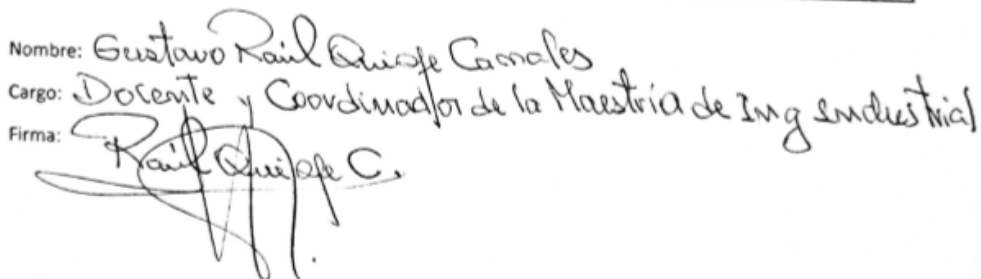 Nombre: Gustavo Raúl Quispe Canales
Cargo: Docente y Coordinador de la Maestría de Ing Industrial
Firma: Raúl Quispe C.